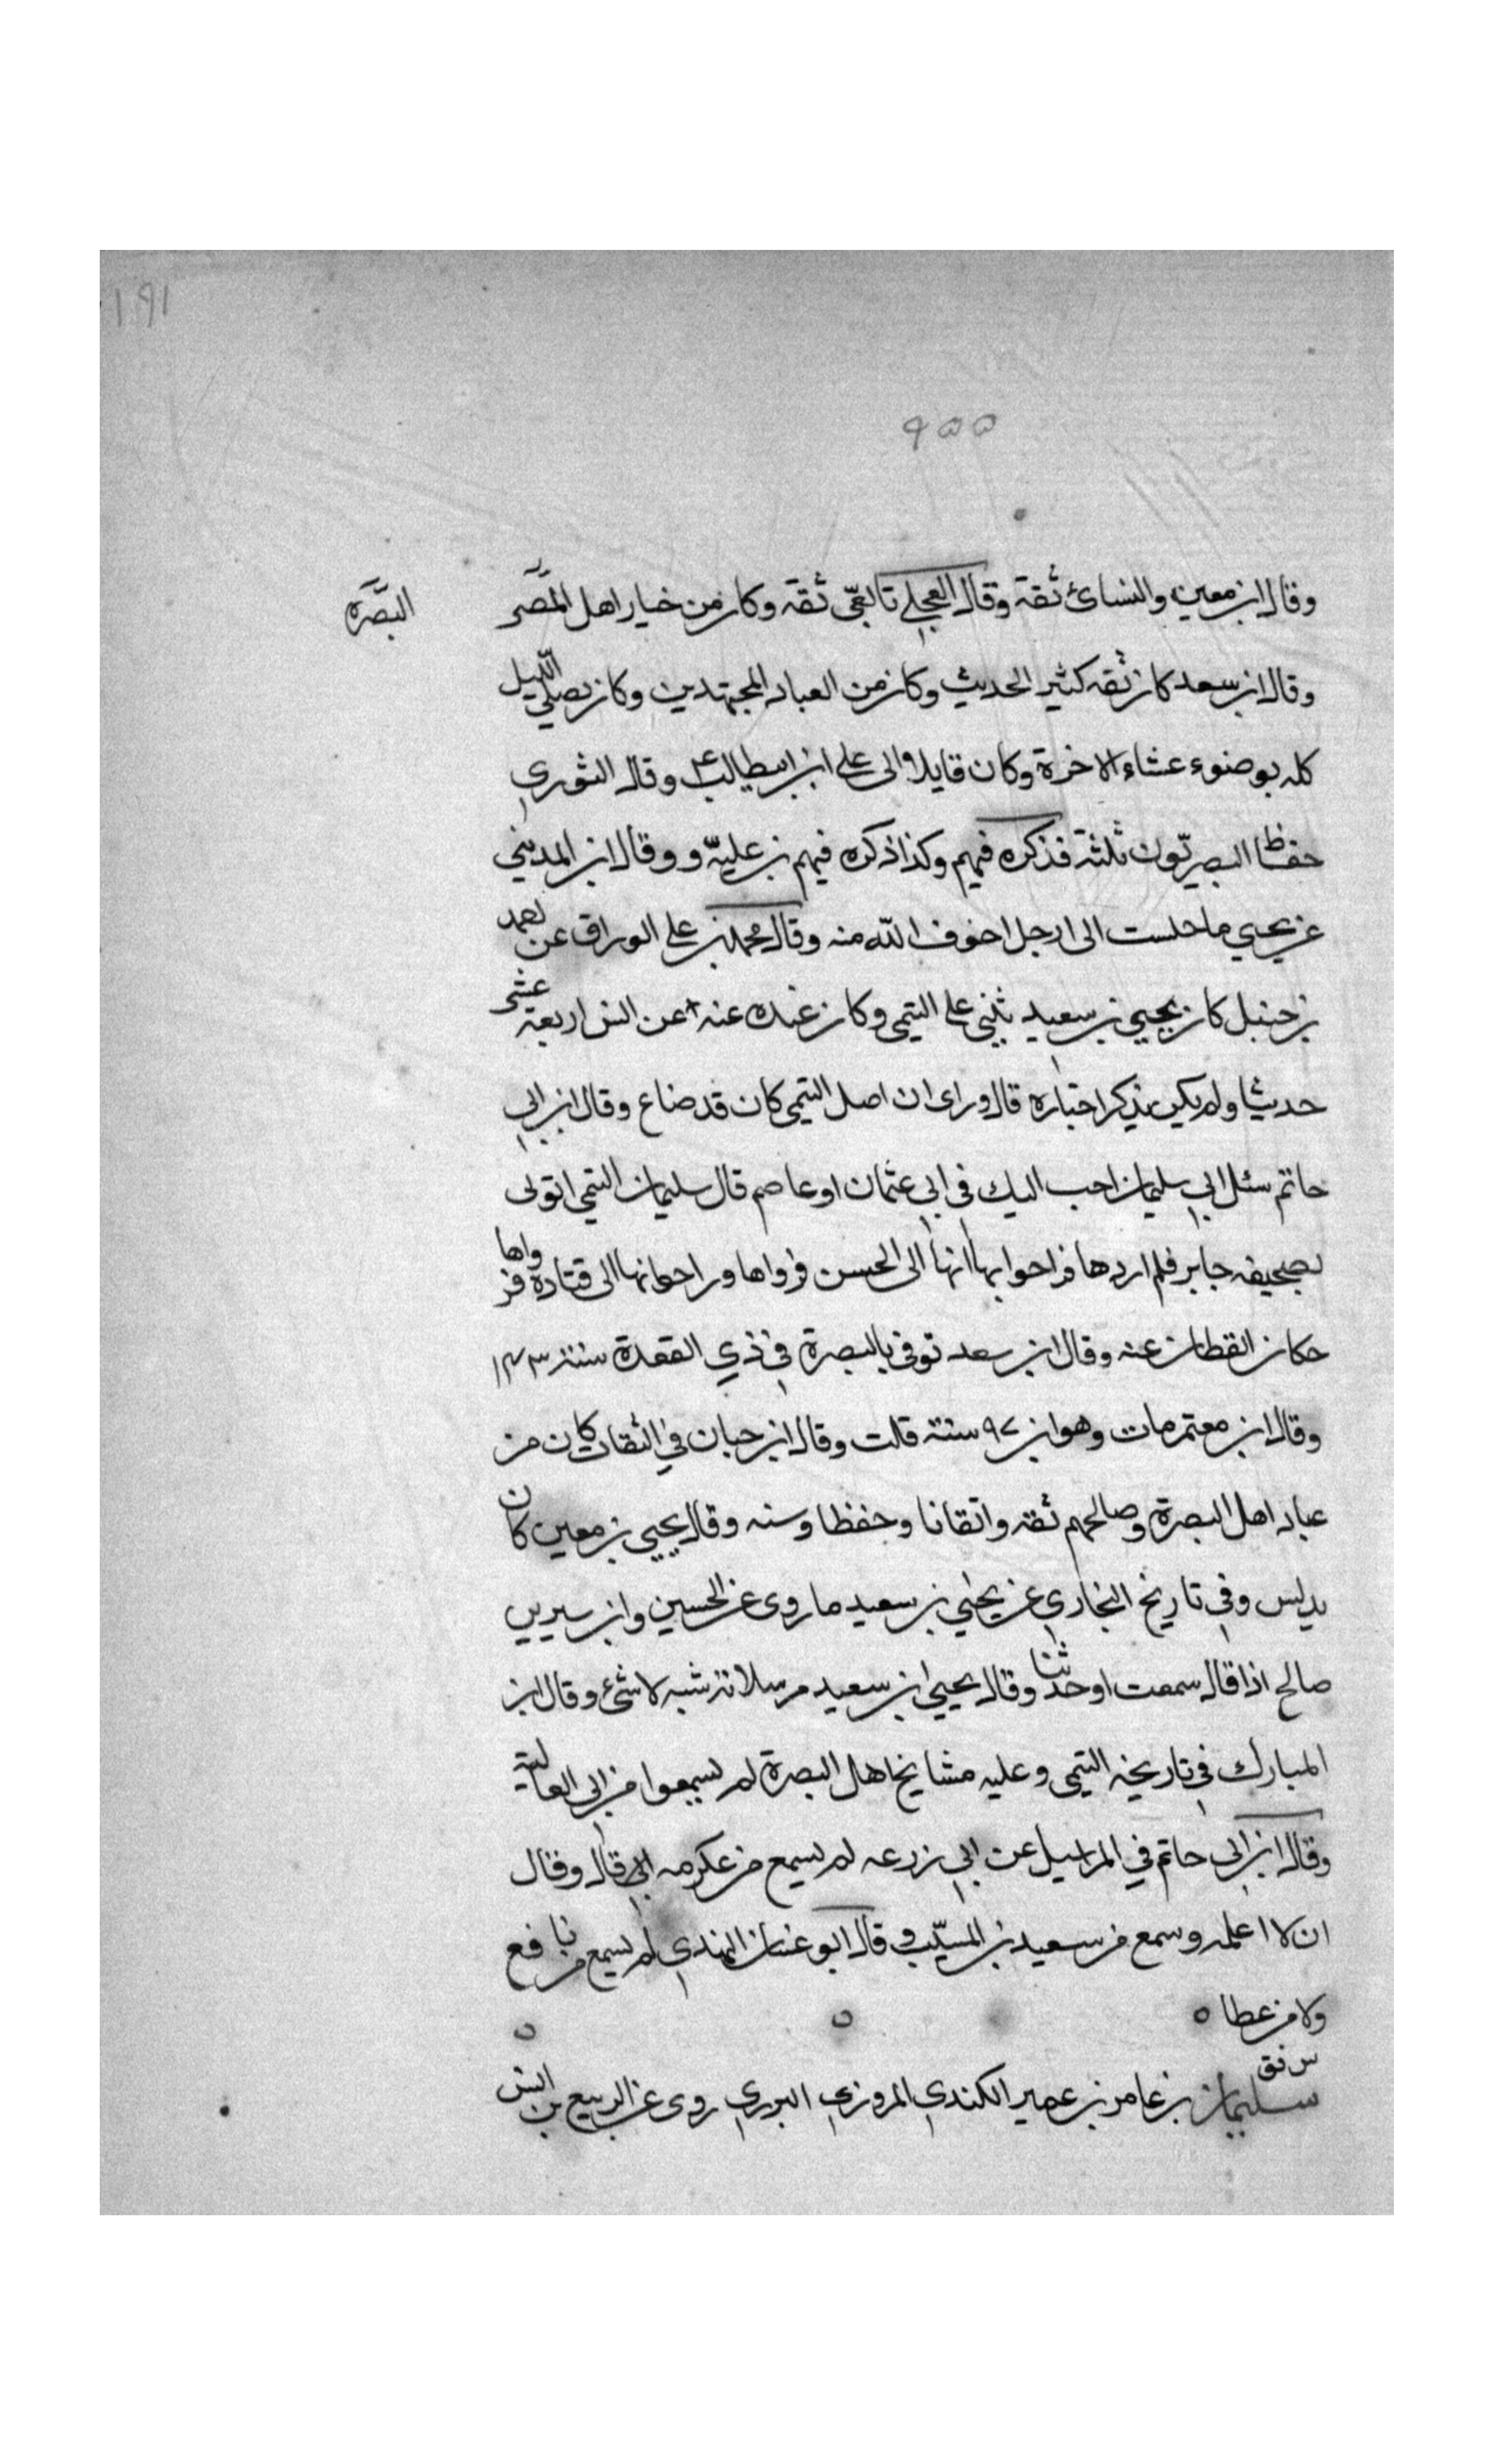 ١٩١
٩٥٥
وقال ابن معين والنسائ ثقة وقال العجلي تابعّي ثقه وكان من خيار اهل المصر
البصرة
وقال ابن سعد كان ثقه كثير الحديث وكان من العباد المجتهدين وكان يصلي الليل
كله بوضوء عشاء الاخرة وكان مايلا الى علي ابن ابيطالب ع وقال الثوري
حفاظ البصريّون ثلثة فذكره فيهم وكذا ذكره فيهم بن عليّه و وقال ابن المديني
عن يحيي ما جلست الى ارجل اخوف الله منه وقال محمد بن علي الوراق عن احمد
بن حنبل كان يحيي بن سعيد يثني على التيمي وكان عنده عنه عن انس اربعة عشر
حديثا ولم يكن يذكر اخباره قال وراى ان اصل التيمي كان قد ضاع وقال ابن ابي
حاتم سئل ابي سليمان احب اليك في ابي عثمان او عاصم قال سليمان التيمي اتوني
بصحيفه جابر فلم اردها فراحوا بها انها الى الحسن فرواها وراحوا بها الى قتادة فرواها
حكان القطان عنه وقال ابن سعد توفي بالبصرة في ذي القعدة سنة ١٤٣
وقال ابن معتمر مات وهو ابن ٩٧ سنة قلت وقال ابن حبان في الثقات كان من
عباد اهل البصرة وصالحهم ثقه واتقانا وحفظا وسنه وقال يحيي بن معين كان
يدلس وفي تاريخ البخاري عن يحيي بن سعيد ما روى عن الحسين وابن سيرين
صالح اذا قال سمعت او حدثنا وقال يحيي ابن سعيد مرسلاته شبه لاشئ وقال ابن
المبارك في تاريخه التيمي وعليه مشايخ اهل البصرة لم يسمعوا من ابي العالية
وقال ابن ابي حاتم في المراسيل عن ابي زرعه لم يسمع من عكرمه قال وقال
ان لا اعلمه وسمع من سعيد بن المسيّب وقال ابو غسان النهدي لم يسمع من نافع
ولا من عطا ه
س فق
سليمان بن عامر بن عمير الكندي المروزي البرزي روى عن الربيع بن انس